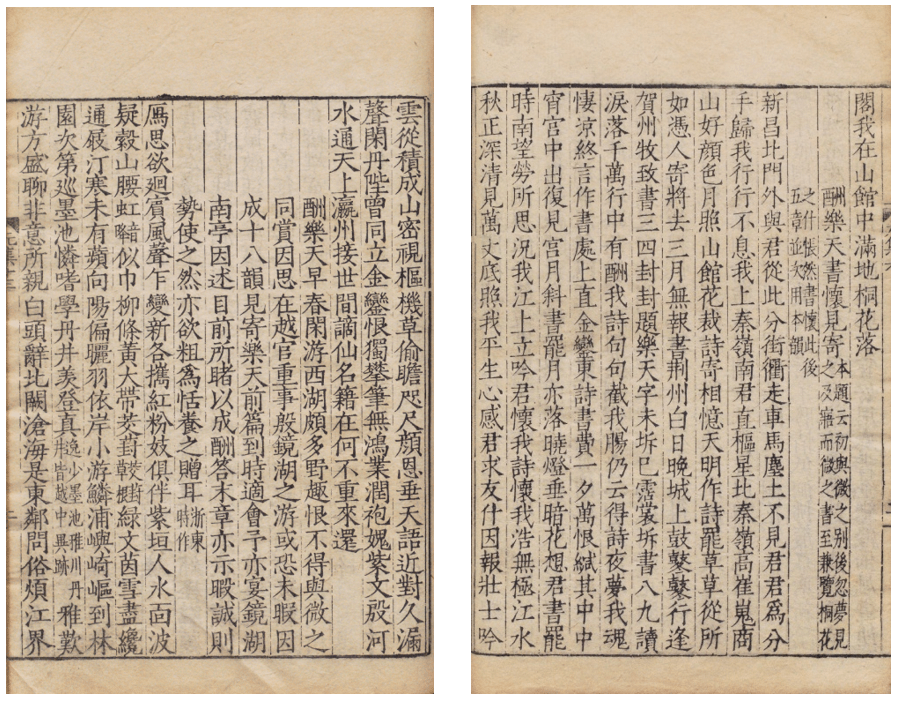 閣我在山館中滿地桐花落
酬樂天書懷見寄本題云初與微之別後忽夢見
之及寤而微之書至兼覽桐花
之什悵然書懷此後
五章並次用本韻
新昌北門外與君從此分街衢走車馬塵土不見君君為分
手歸我行行不息我上秦嶺南君直樞星北秦嶺高崔嵬商
山好顏色月照山館花裁詩寄相憶天明作詩罷草草從所
如憑人寄將去三月無報書荊州白日晚城上鼓鼕鼕行逢
賀州牧致書三四封封題樂天字未坼已霑裳坼書八九讀
淚落千萬行中有酬我詩句句截我腸仍云得詩夜夢我魂
悽凉終言作書處上直金鑾東詩書費一夕萬恨緘其中中
宵宮中出復見宮月斜書罷月亦落曉燈垂暗花想君書罷
時南望勞所思況我江上立吟君懷我詩懷我浩無極江水
秋正深清見萬丈底照我平生心感君求友什因報壯士吟
雲從積成山密視樞機草偷瞻咫尺顏恩垂天語近對久漏
聲閑丹陛曾同立金鑾恨獨攀筆無鴻業潤袍媿紫文殷河
水通天上瀛州接世間謫仙名籍在何不重來還
酬樂天早春閑游西湖頗多野趣恨不得與微之
同賞因思在越官重事殷鏡湖之游或恐未暇因
成十八韻見寄樂天前篇到時適會予亦宴鏡湖
南亭因述目前所睹以成酬答末章亦示暇誠則
勢使之然亦欲粗為恬養之贈耳浙東時作
鴈思欲迴賓風聲乍變新各攜紅粉妓俱伴紫垣人水面波
疑縠山腰虹似巾柳條黃大帶茭葑綠文茵雪盡纔
通屐汀寒未有蘋向陽偏曬羽依岸小游鱗浦嶼崎嶇到林
園次第巡墨池憐嗜學丹井羨登真逸少墨池稚川丹井皆越中異跡雅歎
游方盛聊非意所親白頭辭北闕滄海是東鄰問俗煩江界